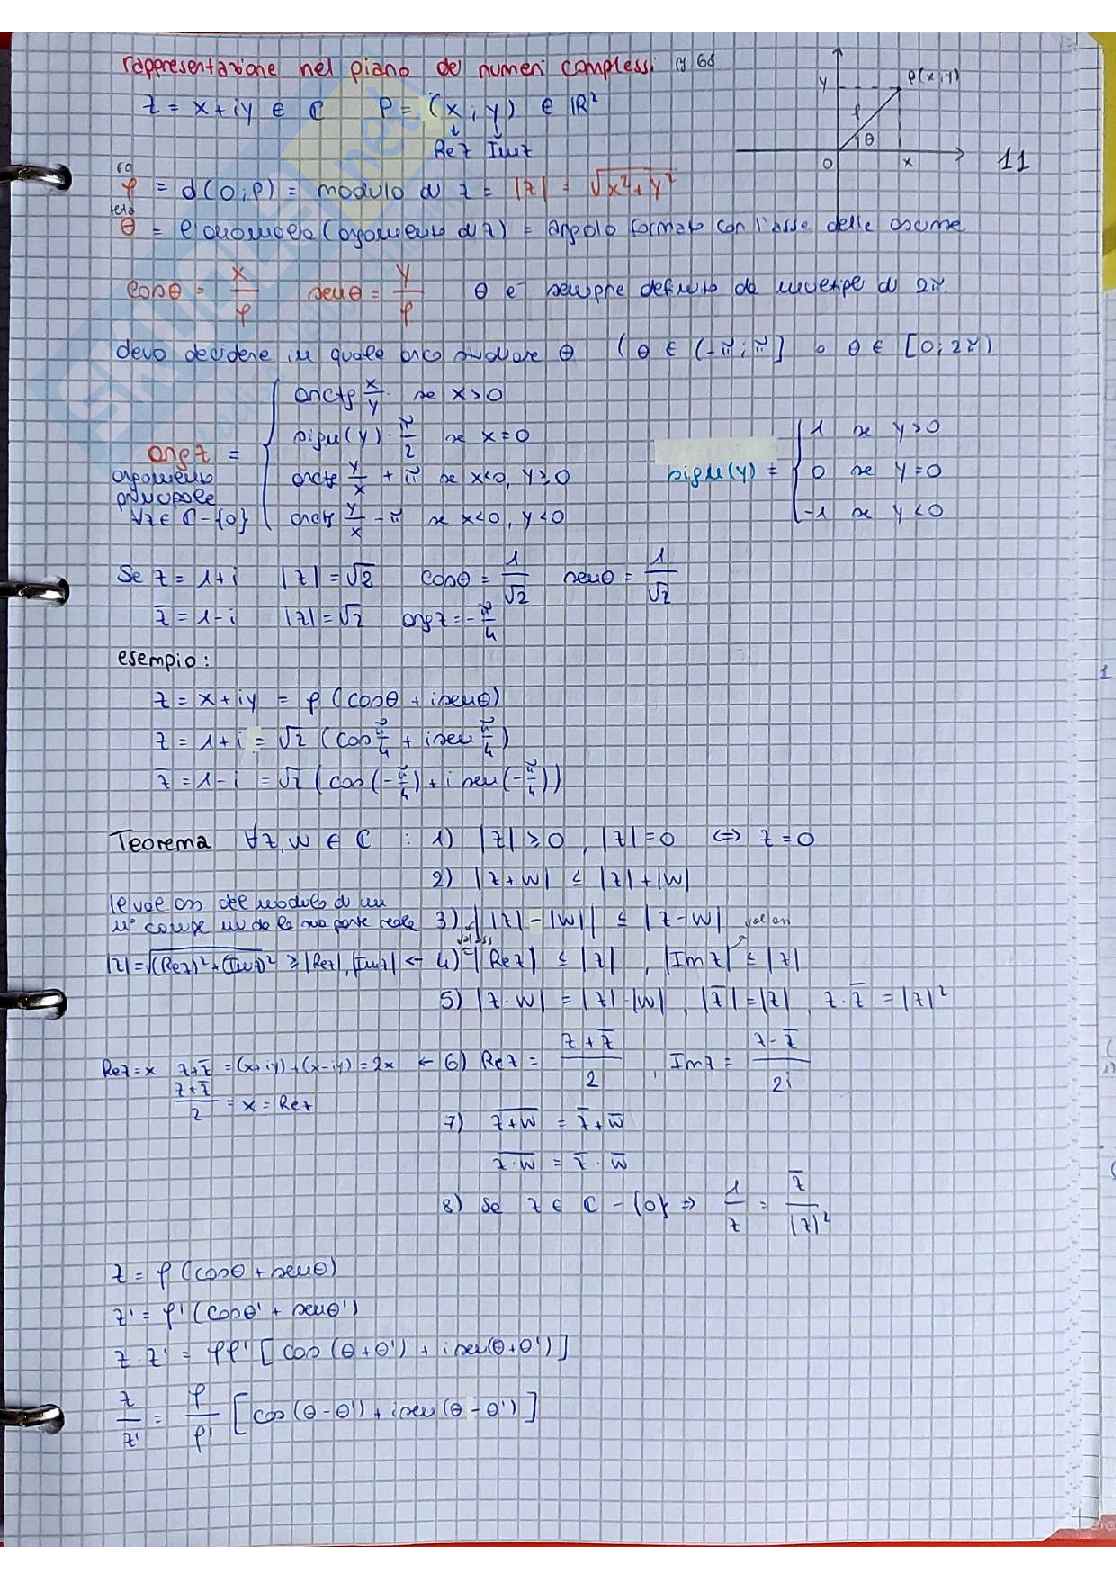 rappresentazione nel piano dei numeri complessi pg 68
z = x+iy ∈ ℂ P = (x, y) ∈ ℝ²
Re z Im z
y P(x,y)
ρ θ
0 x
11
ro
ρ = d(0,P) = modulo di z = |z| = √x²+y²
teta
θ = anomalia (argomento di z) = angolo formato con l'asse delle ascisse
cosθ = x/ρ senθ = y/ρ θ è sempre definito da multiplo di 2π
devo decidere in quale arco θ (θ ∈ (-π; π] o θ ∈ [0; 2π)
arg z = { arctg x/y se x>0
sign(y) π/2 se x=0
arctg y/x + π se x<0, y≥0
arctg y/x - π se x<0, y<0
argomento
principale
∀z ∈ ℂ-{0}
sign(y) = { 1 se y>0
0 se y=0
-1 se y<0
Se z = 1+i |z| = √2 cosθ = 1/√2 senθ = 1/√2
z̄ = 1-i |z| = √2 arg z = -π/4
esempio:
z = x+iy = ρ (cosθ + isenθ)
z = 1+i = √2 (cos π/4 + isen π/4)
z̄ = 1-i = √2 (cos(-π/4) + i sen(-π/4))
Teorema ∀z,w ∈ ℂ : 1) |z| ≥ 0, |z|=0 ⇔ z=0
2) |z+w| ≤ |z|+|w|
le val ass del modulo di un
n° comp la sua parte reale 3) ||z|-|w|| ≤ |z-w| val ass
val ass
|z| = √(Rez)²+(Imz)² ≥ |Rez|, |Imz| ← 4) |Rez| ≤ |z|, |Imz| ≤ |z|
5) |z·w| = |z|·|w|, |z̄|=|z|, z·z̄ = |z|²
Rez = x z+z̄ = (x+iy)+(x-iy) = 2x ← 6) Rez = z+z̄/2, Imz = z-z̄/2i
z+z̄/2 = x = Rez
7) z+w‾ = z̄+w̄
z·w‾ = z̄·w̄
8) se z ∈ ℂ-{0} ⇒ 1/z = z̄/|z|²
z = ρ (cosθ + senθ)
z' = ρ' (cosθ' + senθ')
z·z' = ρρ' [cos (θ+θ') + isen(θ+θ')]
z/z' = ρ/ρ' [cos(θ-θ') + isen(θ-θ')]